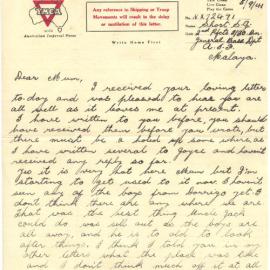 YMCA
WITH THE
Australian Imperial Force
Any reference to Shipping or Troop
Movements will result in the delay
or mutilation of this letter.
Write Home First
5/9/41
No. 72491
Malaya.
Dear Mum,
I received your loving letter
to-day and was pleased to hear you are
all well as it leaves me at present. I
have written to you before, you should
have received them before you wrote, but
there must be a hold up some where, as
I have written several to Joyce and havent
received any reply so far.
Yes it is very hot here Mum but I'm
starting to get used to it now. I havent
seen any of the boys from yet I
dont think there are any where we are
That was the best thing Uncle Jack
could do was sell out as the boys are
all away, and he is to old to look
after things. I think I told you in my
other letters what the place was like
and I dont think much of it at all